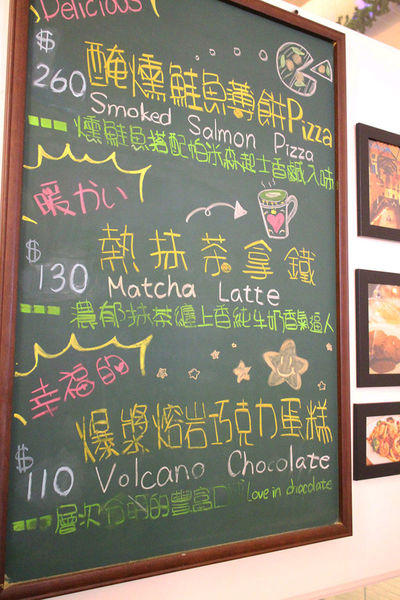 Delicious
$260
醃燻鮭魚薄餅Pizza
Smoked Salmon Pizza
燻鮭魚搭配帕米森起士香鹹入味
暖かい
$130
熱抹茶拿鐵
Matcha Latte
濃郁抹茶纏上香純牛奶香氣逼人
幸福的
$110
爆漿熔岩巧克力蛋糕
Volcano Chocolate
Love in chocolate
層次分明的豐富口